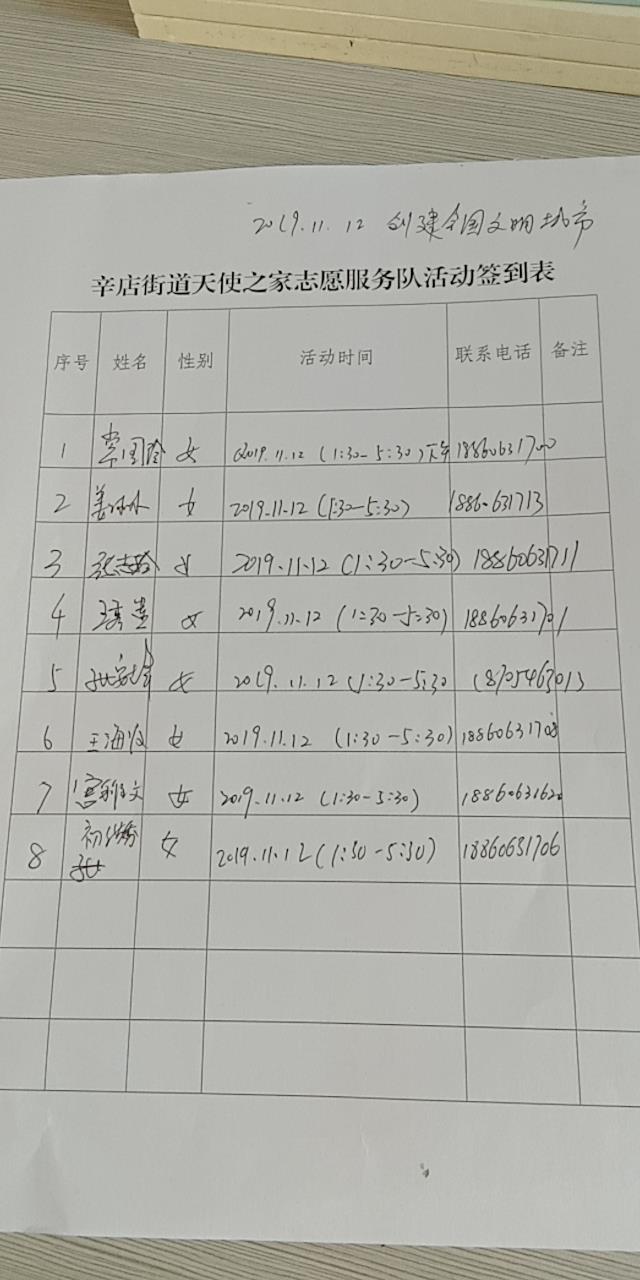 2019.11.12 创建全国文明城市
辛店街道天使之家志愿服务队活动签到表
序号 姓名 性别 活动时间 联系电话 备注
1 女 2019.11.12 (1:30-5:30)下午 18860631700
2 姜冰冰 女 2019.11.12 (1:30-5:30) 18860631713
3 张志玲 女 2019.11.12 (1:30-5:30) 18860631711
4 女 2019.11.12 (1:30-5:30) 18860631701
5 女 2019.11.12 (1:30-5:30
6 王海 女 2019.11.12 (1:30-5:30) 18860631708
7 文 女 2019.11.12 (1:30-5:30) 18860631620
8 初 女 2019.11.12 (1:30-5:30) 18860631706